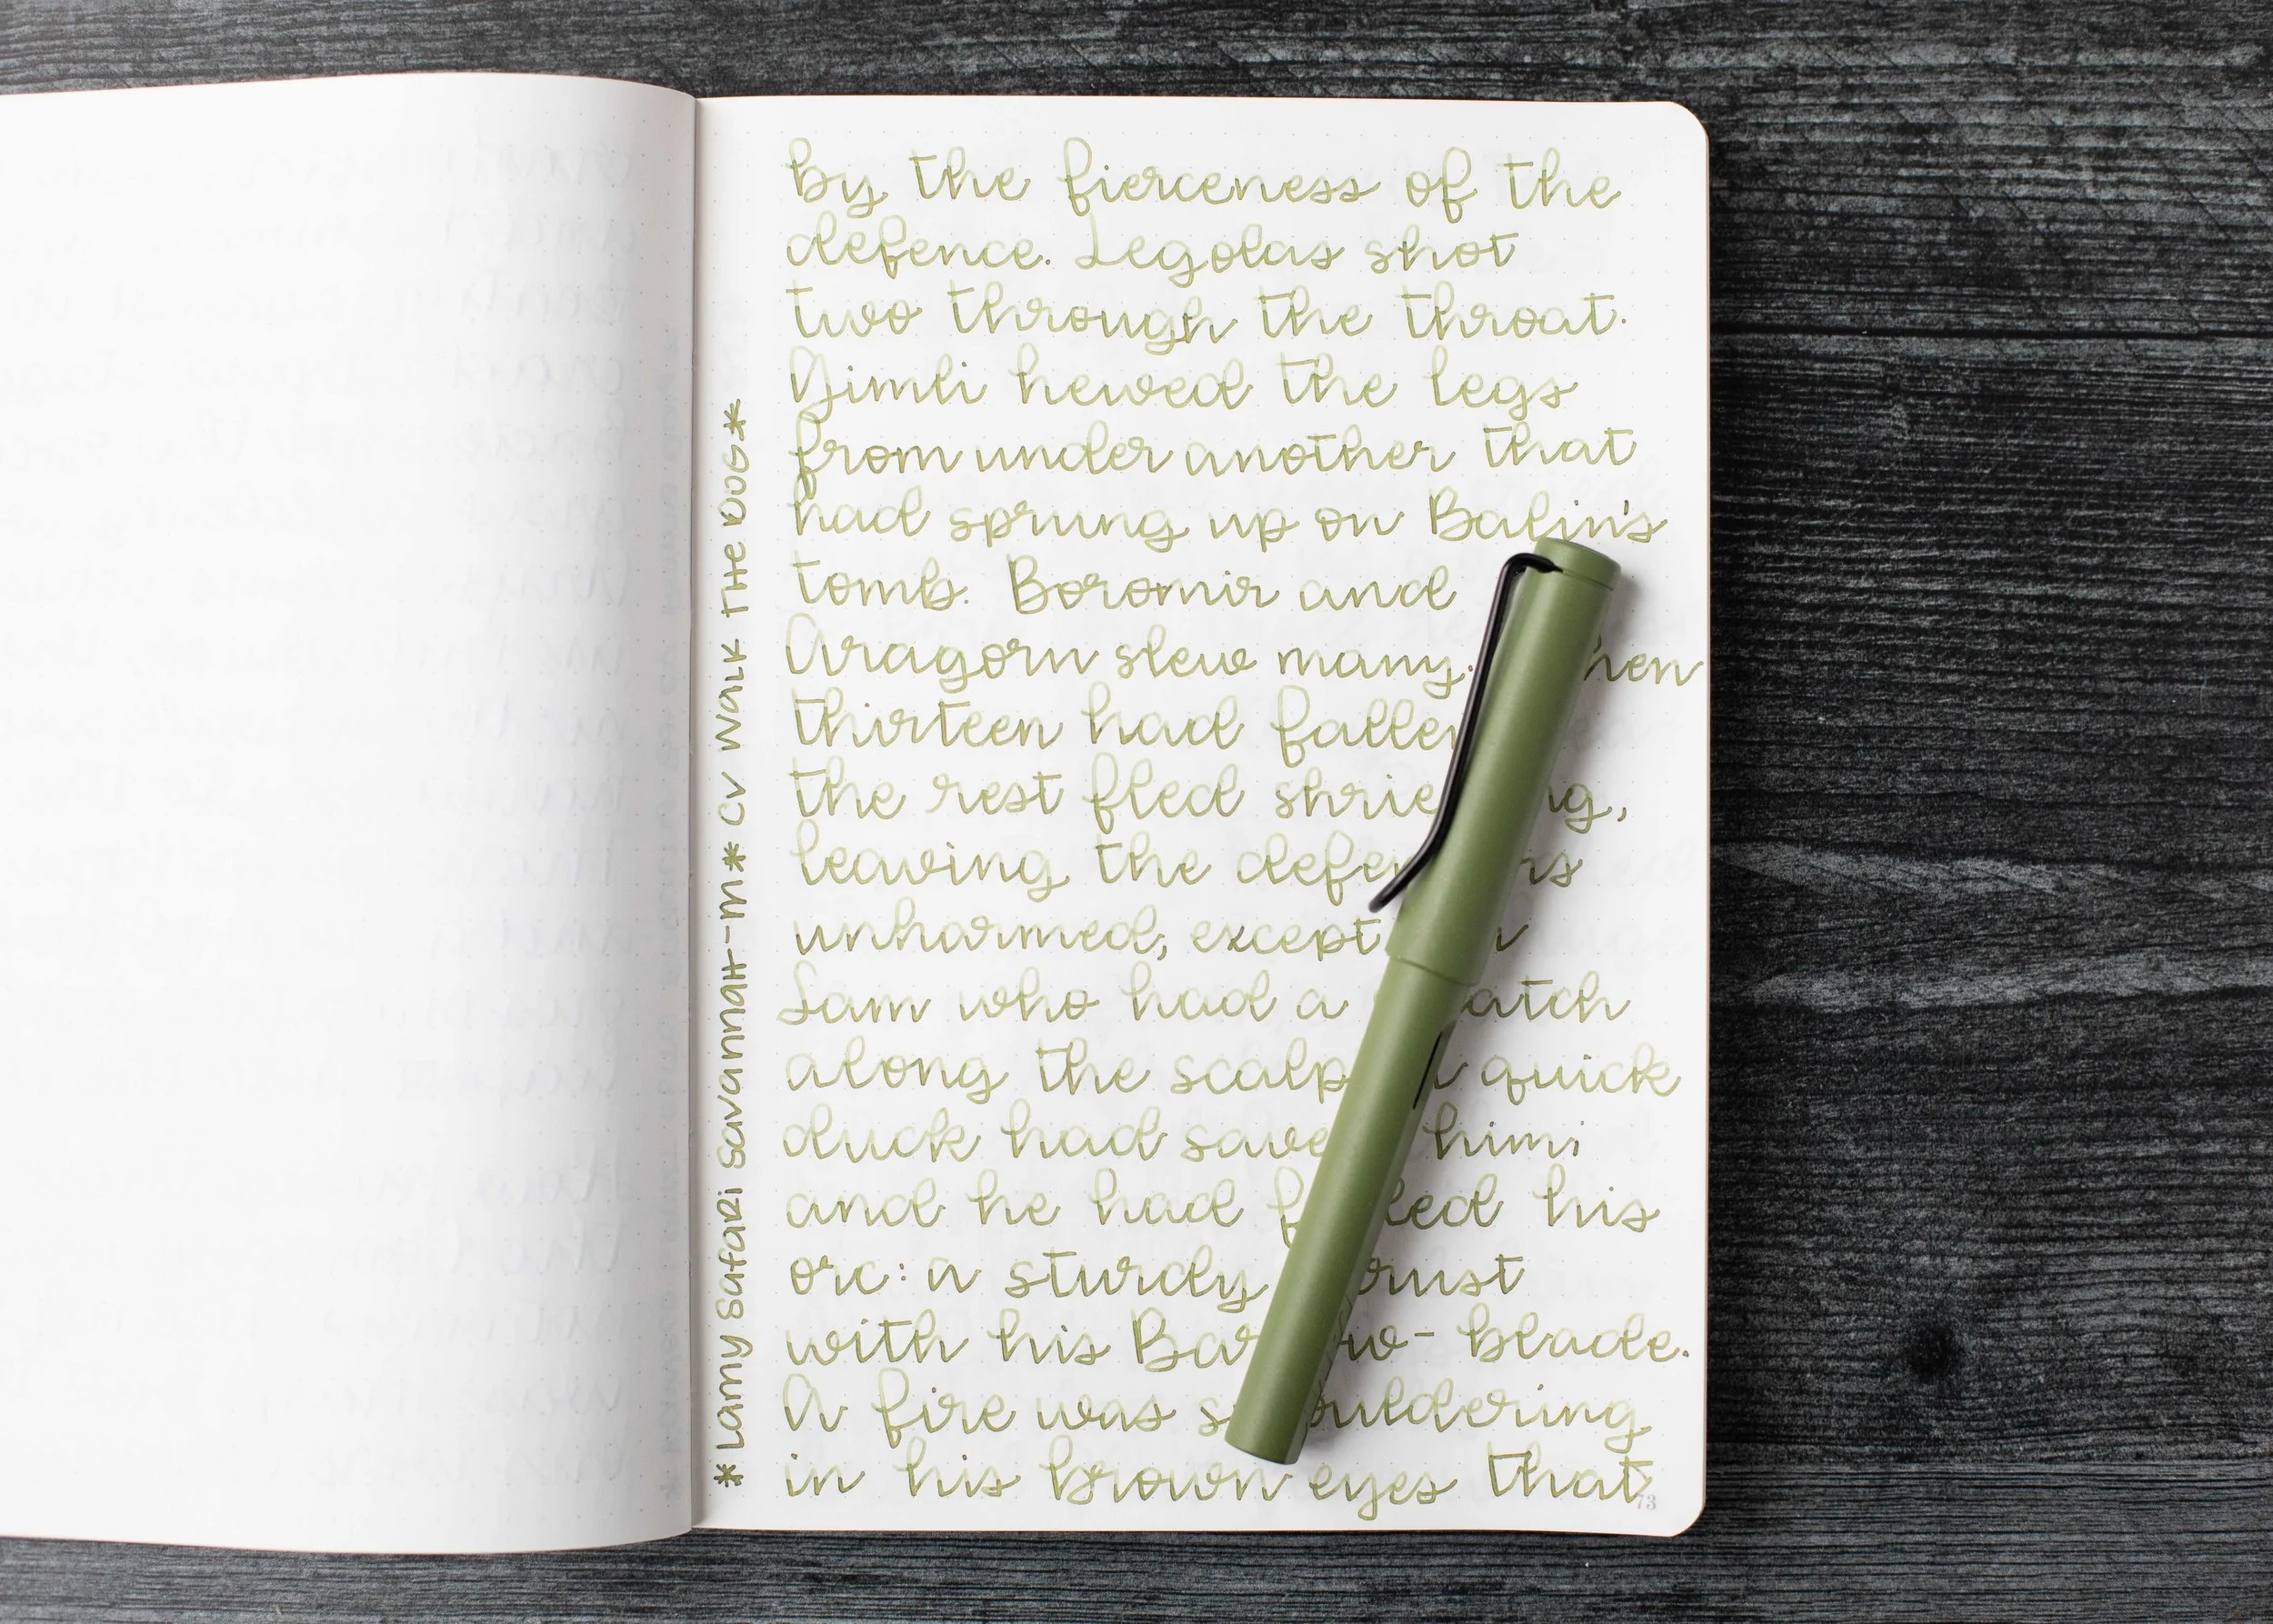 *Lamy Safari Savannah-M* CV Walk The Dog*
by the fierceness of the
defence. Legolas shot
two through the throat.
Gimli hewed the legs
from under another that
had sprung up on Balin's
tomb. Boromir and
Aragorn slew many.
thirteen had fallen
the rest fled
leaving the
unharmed, except
Sam who had a
along the scalp quick
duck had him;
and he had his
orc: a sturdy
with his -blade.
A fire was
in his brown eyes that
73